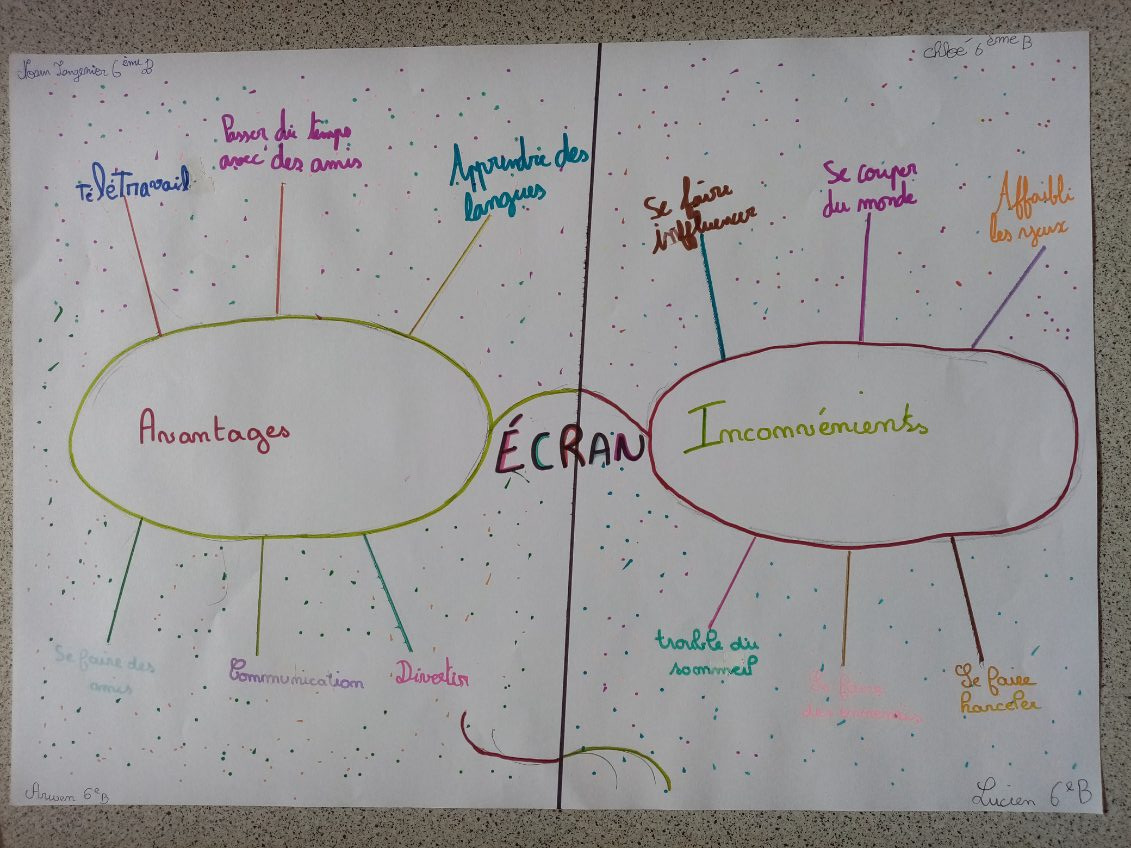 6ème B
Chloé 6ème B
Télétravail
Passer du temps
avec des amis
Apprendre des
langues
Se faire
influencer
Se couper
du monde
Affaibli
les yeux
Avantages
ÉCRAN
Inconvénients
Se faire des
amis
Communication
Divertir
trouble du
sommeil
Se faire
des ennemis
Se faire
harceler
Arwen 6e B
Lucien 6e B